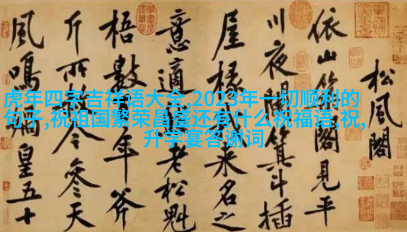 虎年四字吉祥语大全,2023年一切顺利的
句子,祝祖国繁荣昌盛还有什么祝福语,祝
升学宴答谢词
松風閣
依山築閣見平
川夜闌箕斗插
屋椽我來名之
意適然老松魁
梧數百年斧
斤所赦今參天
風鳴媧皇五十